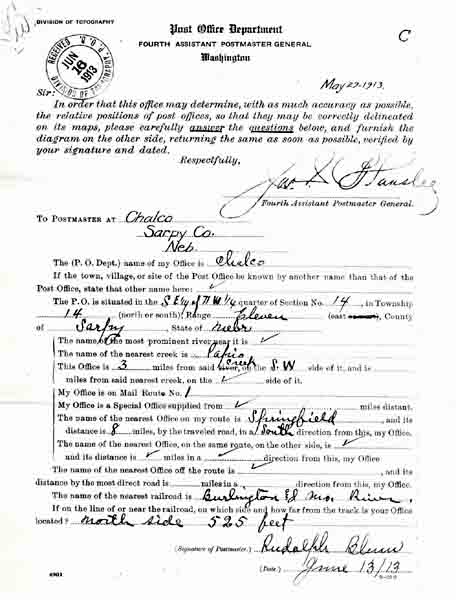 DIVISION OF TOPOGRAPHY
Post Office Department
C
FOURTH ASSISTANT POSTMASTER GENERAL
Washington
RECEIVED P.O.D.
JUN 16 1913
DIVISION OF TOPOGRAPHY
May 27 1913.
Sir:
In order that this office may determine, with as much accuracy as possible,
the relative positions of post offices, so that they may be correctly delineated
on its maps, please carefully answer the questions below, and furnish the
diagram on the other side, returning the same as soon as possible, verified by
your signature and dated.
Respectfully,
Fourth Assistant Postmaster General.
TO POSTMASTER AT Chalco
Sarpy Co.
Neb.
The (P. O. Dept.) name of my Office is Chalco
If the town, village, or site of the Post Office be known by another name than that of the
Post Office, state that other name here: ✓
The P. O. is situated in the S Ely of N.W. 1/4 quarter of Section No. 14, in Township
14 (north or south), Range Eleven (east or west), County
of Sarpy, State of Nebr
The name of the most prominent river near it is ✓
The name of the nearest creek is Papio
This Office is 3 miles from said river, creek on the S W side of it, and is
miles from said nearest creek, on the ✓ side of it.
My Office is on Mail Route No. 1
My Office is a Special Office supplied from ✓ miles distant.
The name of the nearest Office on my route is Springfield, and its
distance is 8 miles, by the traveled road, in a South direction from this, my Office.
The name of the nearest Office, on the same route, on the other side, is ✓
and its distance is ✓ miles in a ✓ direction from this, my Office
The name of the nearest Office off the route is ✓, and its
distance by the most direct road is miles in a direction from this, my Office.
The name of the nearest railroad is Burlington & Mo. River.
If on the line of or near the railroad, on which side and how far from the track is your Office
located? north side 525 feet
(Signature of Postmaster.) Rudolph Blum
(Date.) June 13/13